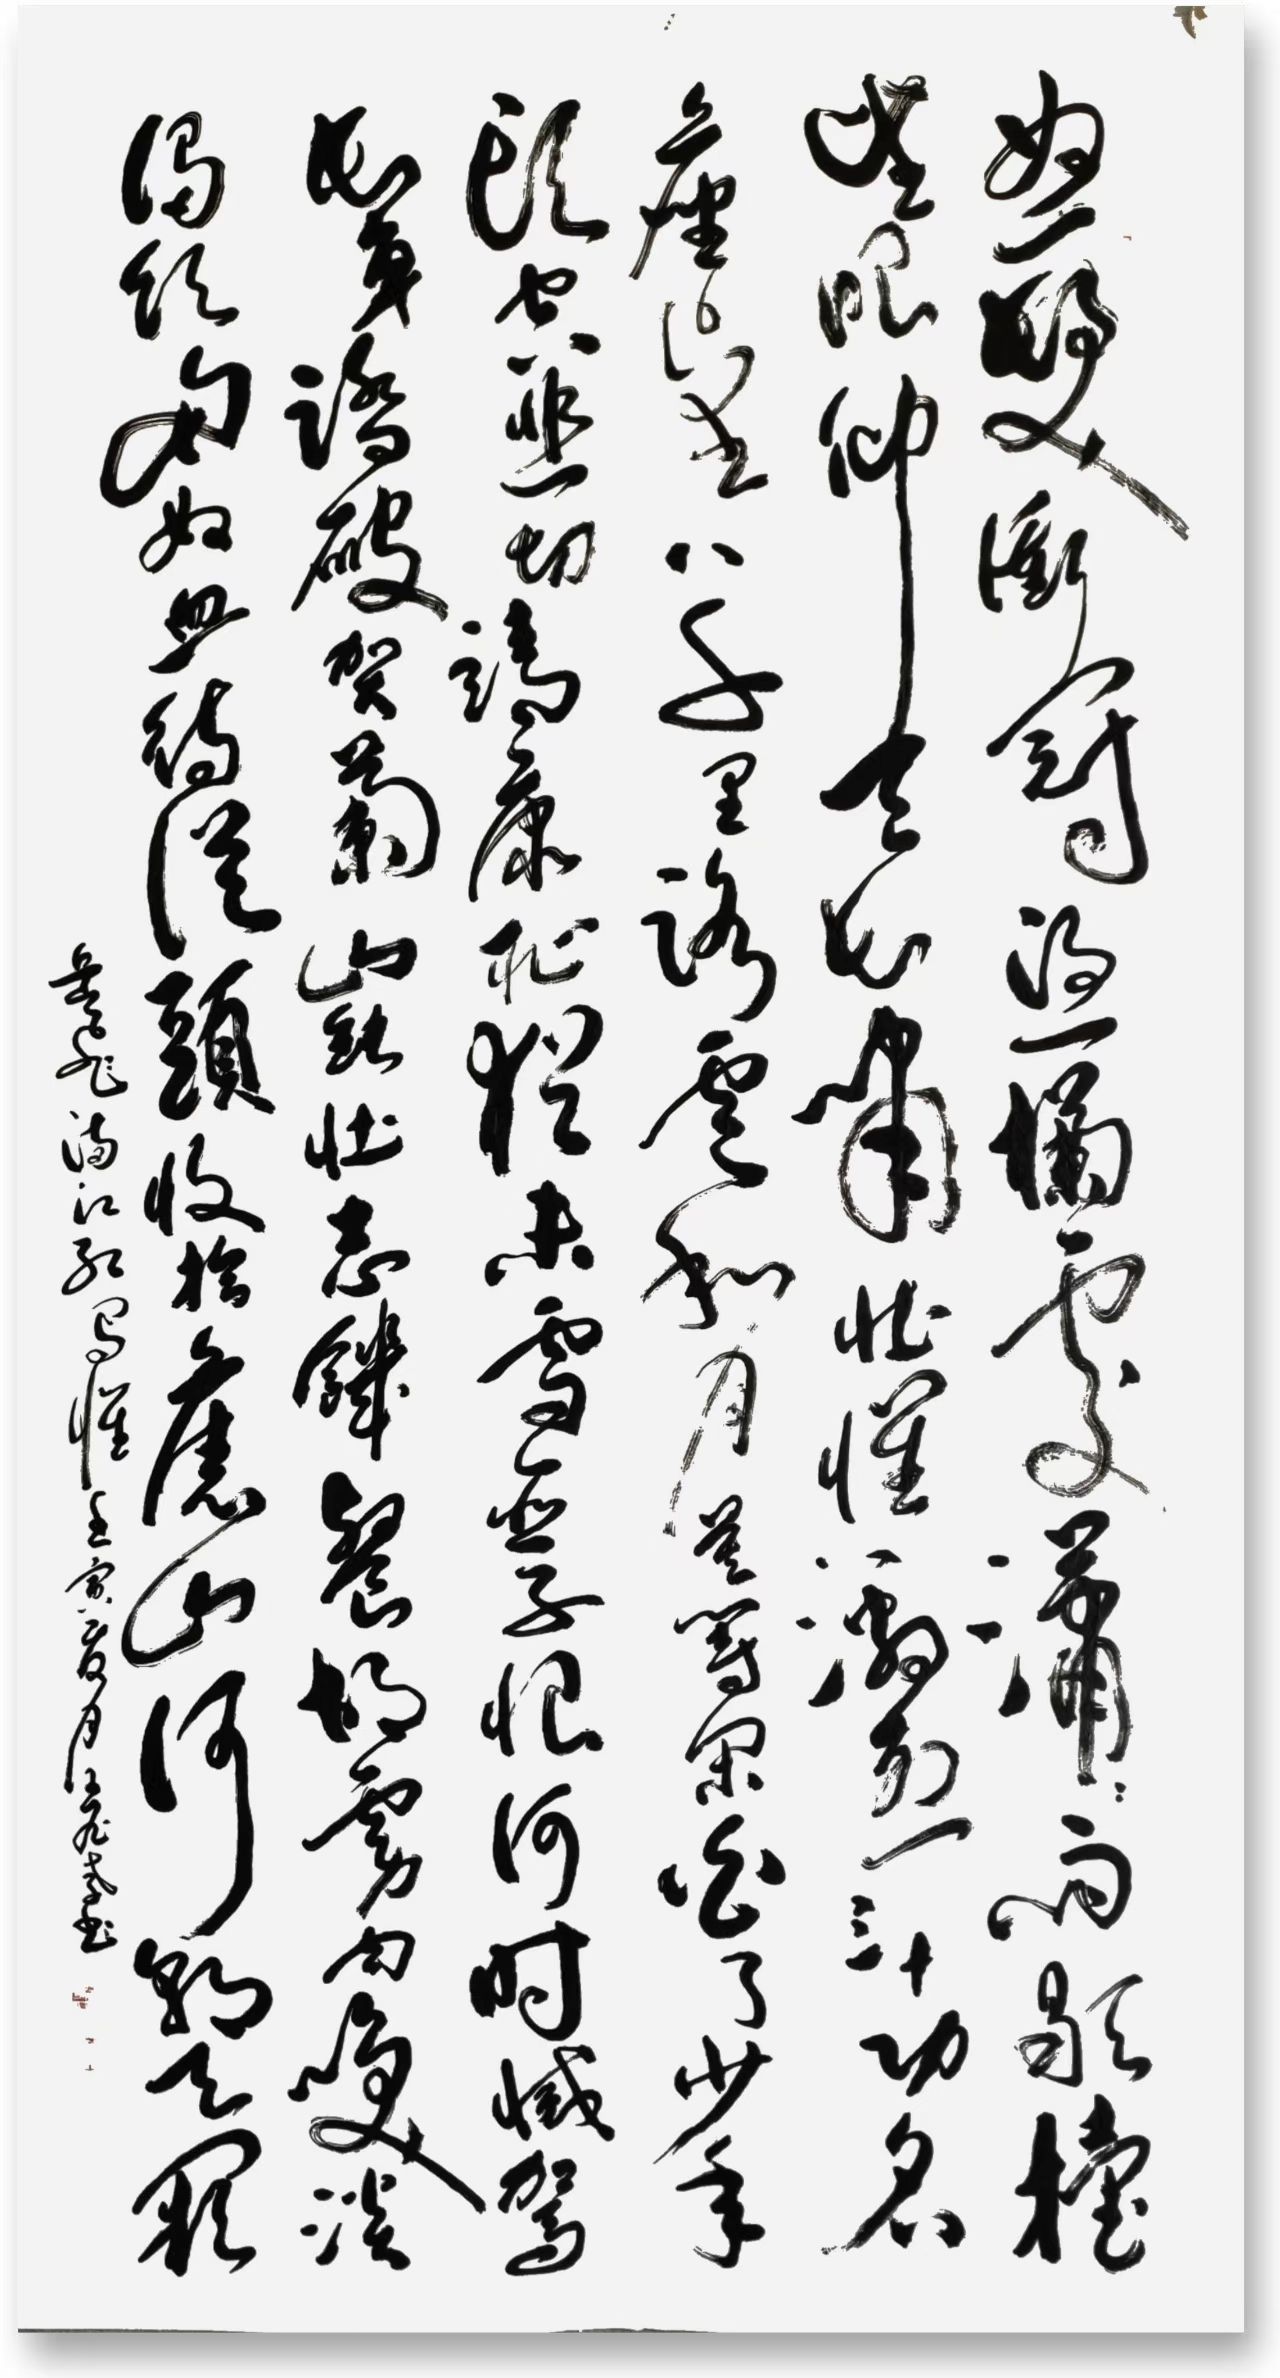 怒髮衝冠憑欄處瀟瀟雨歇擡
望眼仰天長嘯壯懷激烈三十功名
塵與土八千里路雲和月莫等閑白了少年
頭空悲切靖康恥猶未雪臣子恨何时憾駕
長車踏破賀蘭山缺壯志饑餐胡虜肉笑談
渴飲匈奴血待從頭收拾舊山河朝天闕
岳飛滿江紅寫懷壬寅夏月书